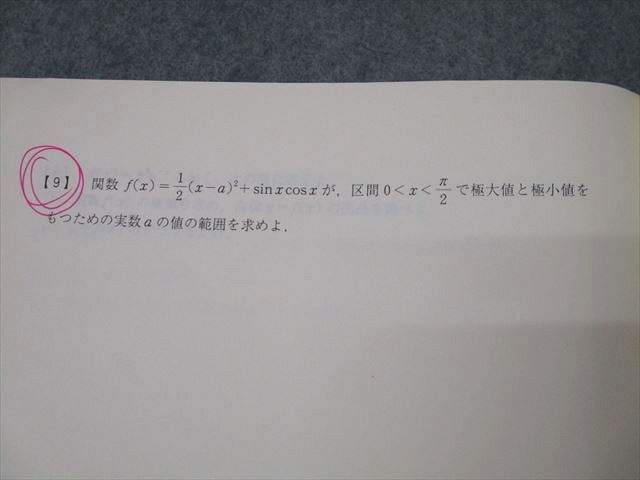 【9】 関数 f(x)=\frac{1}{2}(x-a)²+sin x cos x が, 区間 0<x<\frac{π}{2} で極大値と極小値を
もつための実数 a の値の範囲を求めよ.